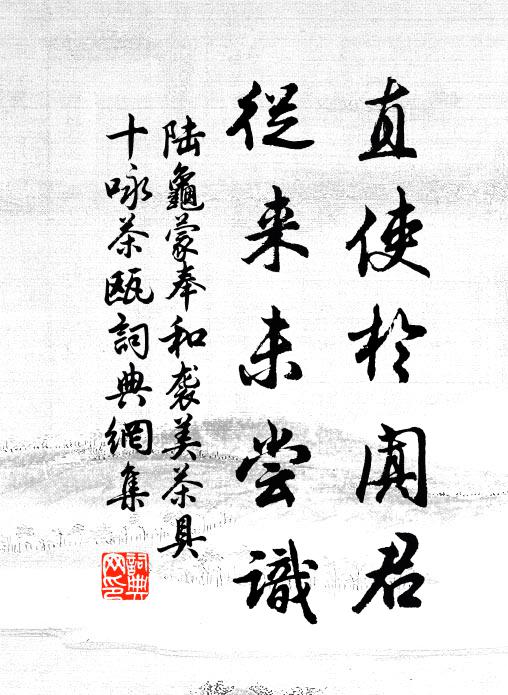 直使於闐君
從来未尝識
陆龜蒙奉和袭美茶具
十咏茶瓯詞典網集
詞典
网印